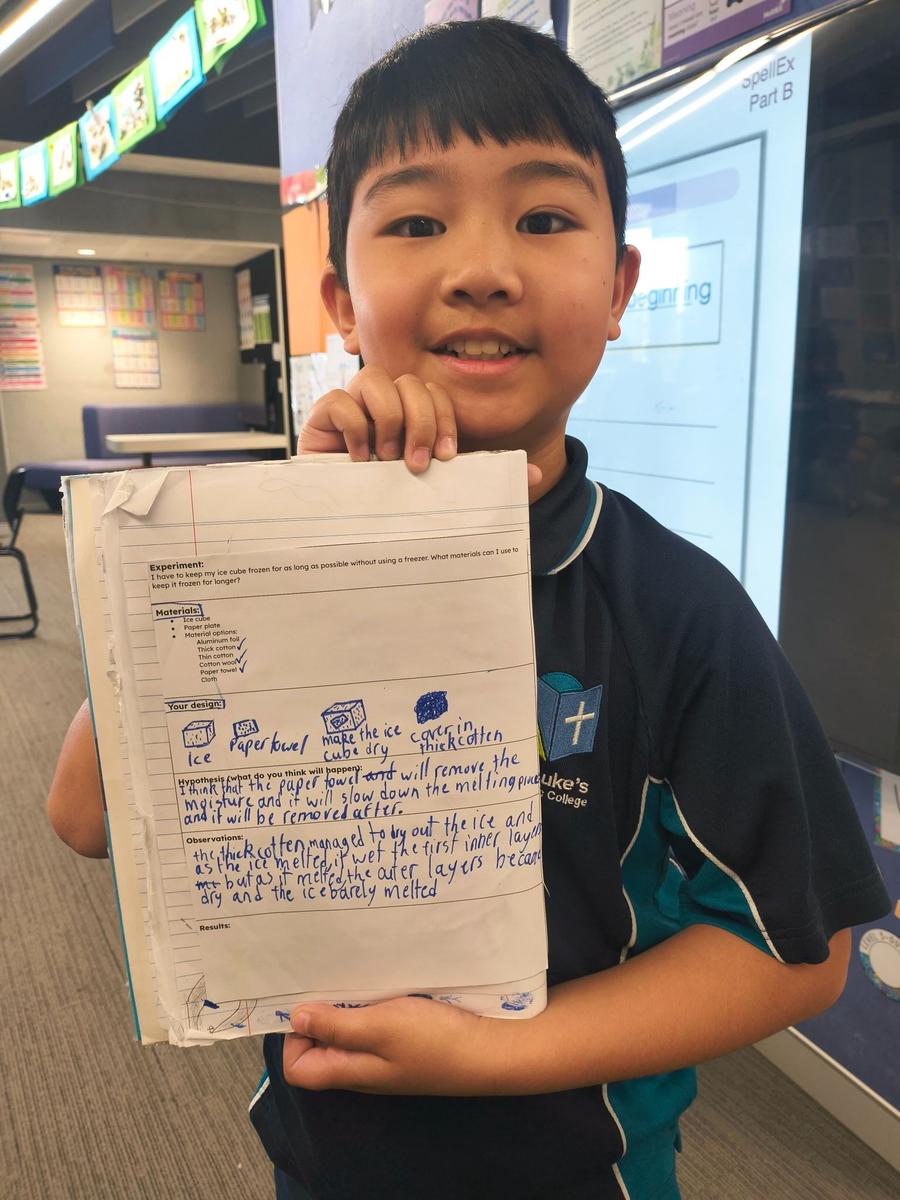 SpellEx
Part B
beginning
Experiment:
I have to keep my ice cube frozen for as long as possible without using a freezer. What materials can I use to
keep it frozen for longer?
Materials:
Ice cube
Paper plate
Material options:
Aluminum foil
Thick cotton ✓
Thin cotton ✓
Cotton wool ✓
Paper towel ✓
Cloth
Your design:
ice
Paper towel
make the ice
cube dry
cover in
thick cotten
Hypothesis (what do you think will happen):
I think that the paper towel and will remove the
moisture and it will slow down the melting
and it will be removed after.
Observations:
the thick cotten managed to dry out the ice and
as the ice melted it wet the first inner layers
but as it melted the outer layers became
dry and the ice barely melted
Results:
uke's
College